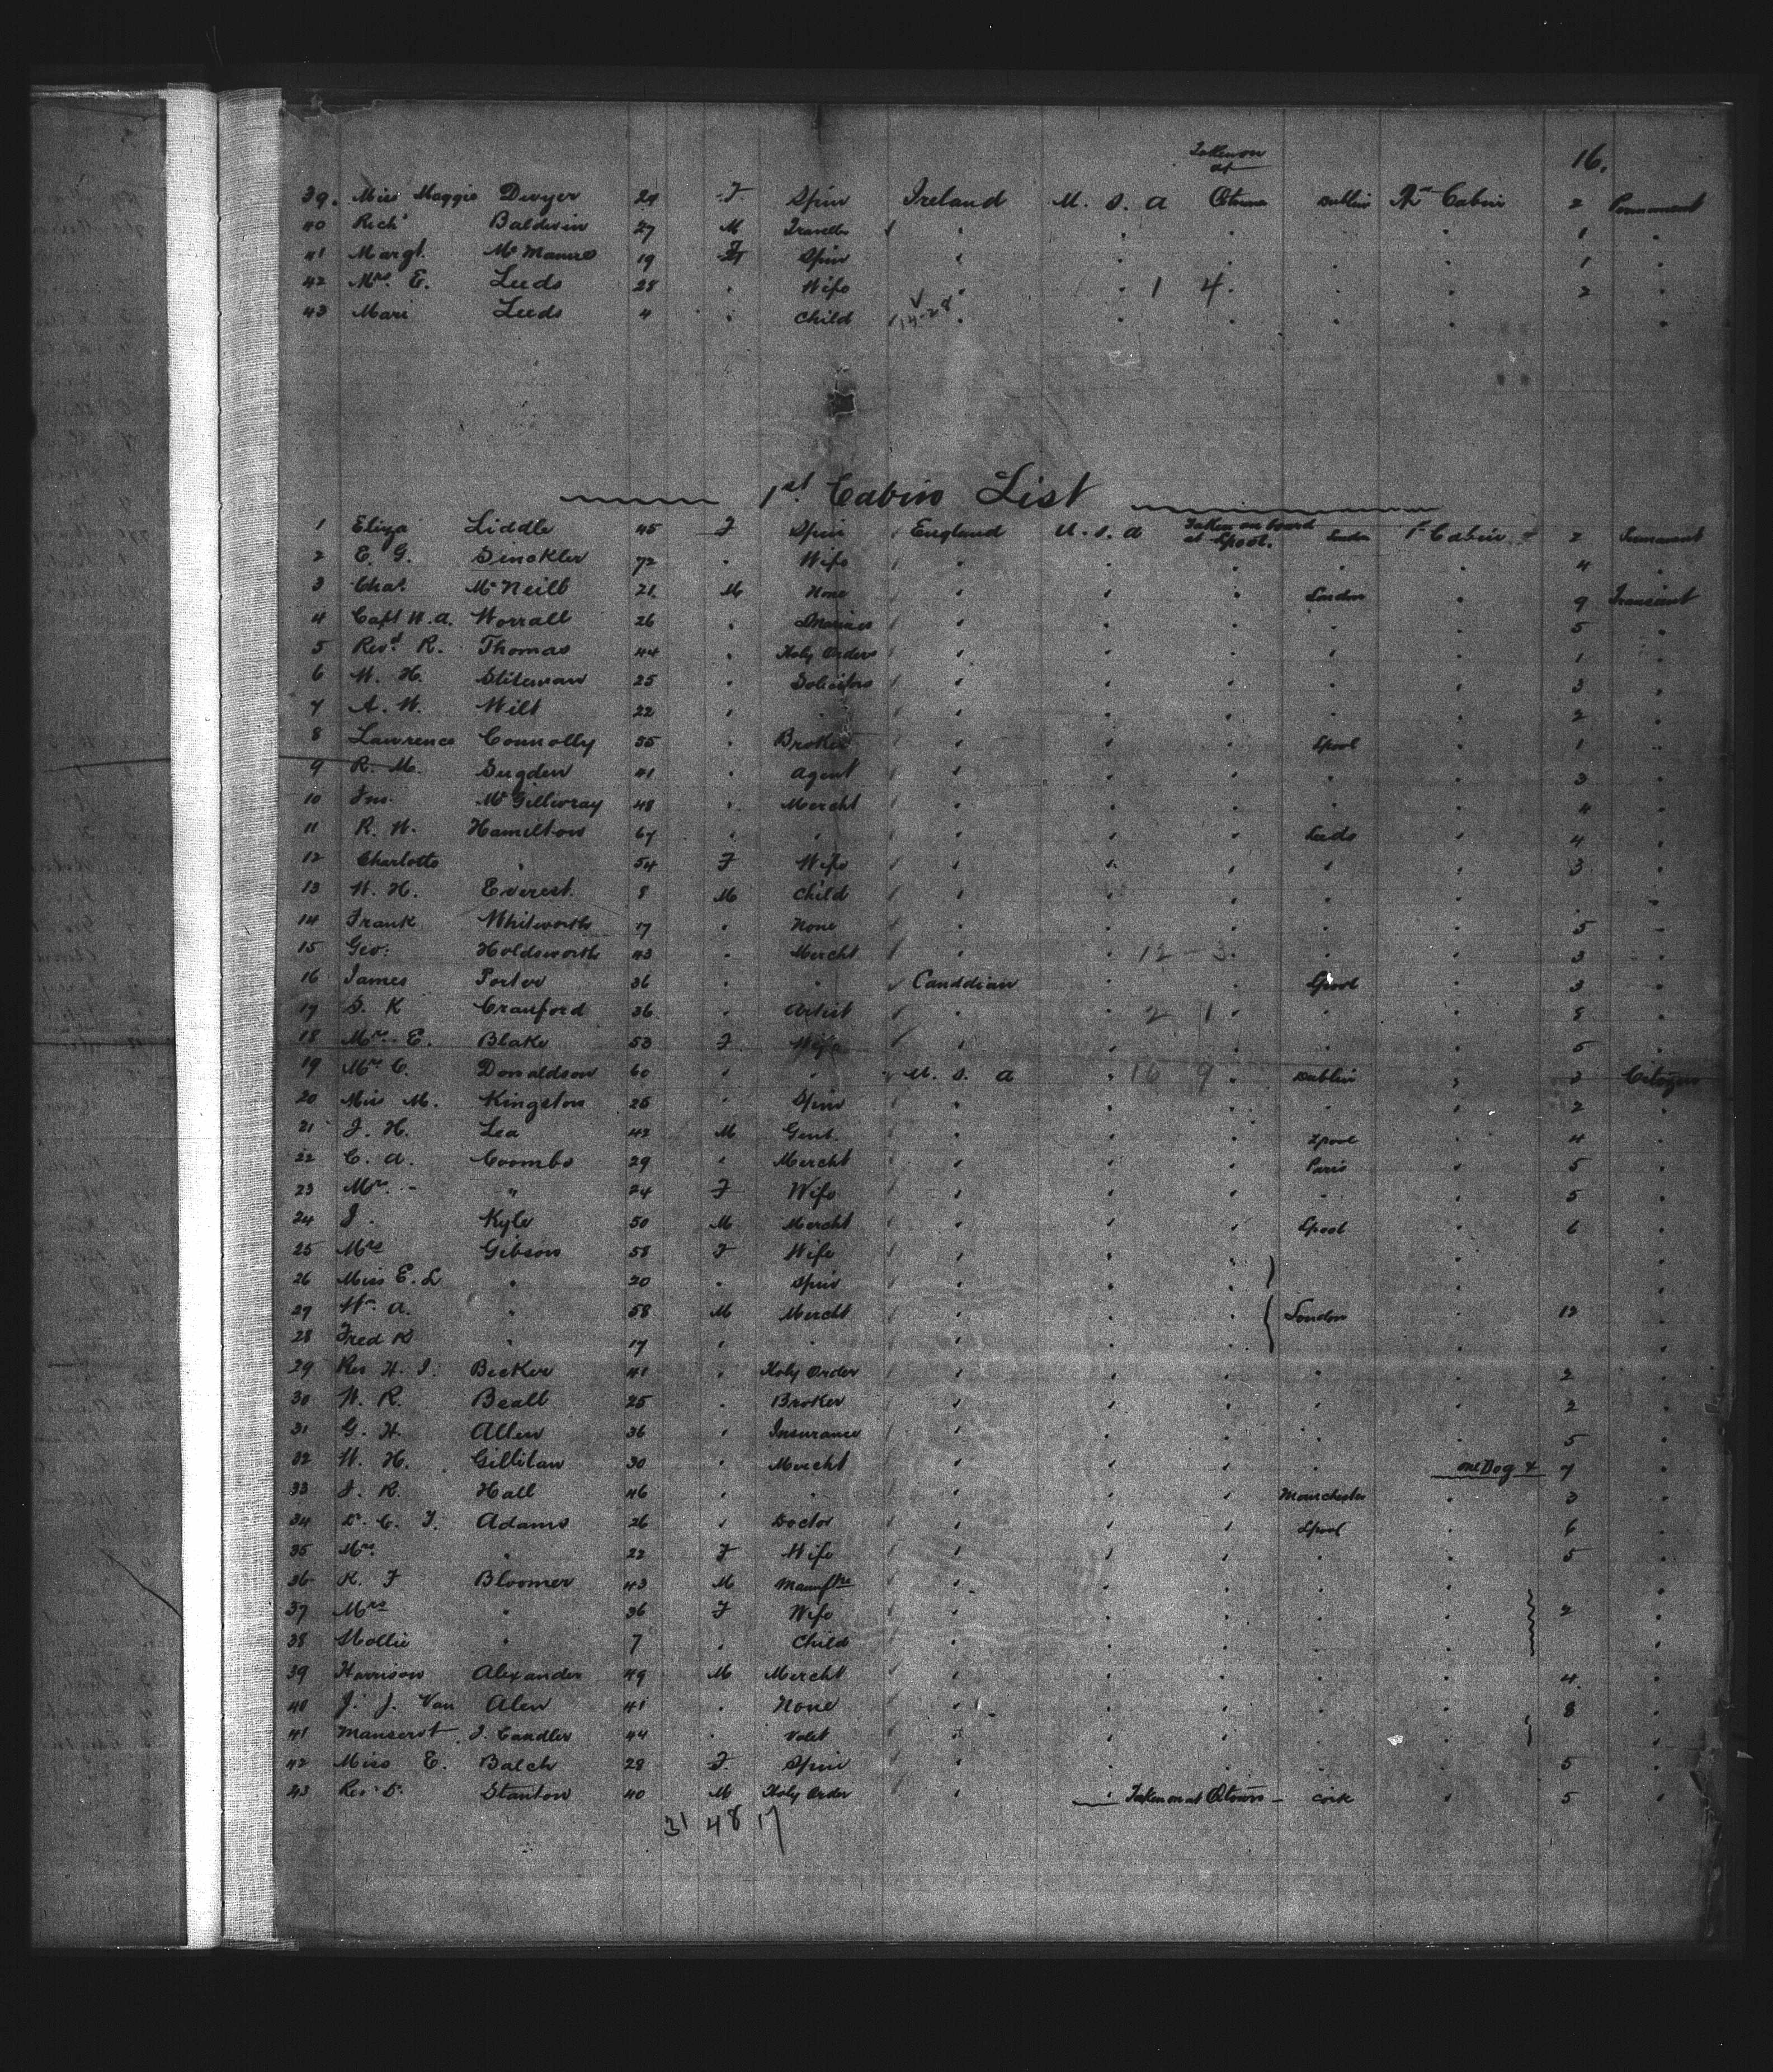 Taken on
at 16.
39. Miss Maggie Dwyer 24 F Spin Ireland U. S. A Qtown Dublin Cabin 2 Permanent
40 Richd Baldwin 27 M Traveller " " " " 1 "
41 Margt. McManus 19 F Spin " " " " 1 "
42 Mrs. E. Leeds 28 " Wife " " 1 4. " " 2 "
43 Mari Leeds 4 " Child " " " " " "
1st Cabin List
1 Eliza Liddle 45 F Spin England U. S. A Taken on board at Lpool. London 1st Cabin 2 Permanent
2 E. G. Sinckler 72 " Wife " " " " " 4 "
3 Chas. McNeill 21 M None " " " London " 9 Transient
4 Capt W. A. Worrall 26 " " " " " " 5 "
5 Revd R. Thomas 44 " Holy Orders " " " " " 1 "
6 W. H. Stileman 25 " Solicitor " " " " " 3 "
7 A. W. Wilt 22 " " " " " " " 2 "
8 Lawrence Connolly 55 " Broker " " " Lpool " 1 "
9 R. M. Sugden 41 " Agent " " " " " 3 "
10 Jno. McGillivray 48 " Mercht " " " " " 4 "
11 R. W. Hamilton 67 " " " " " Leeds " 4 "
12 Charlotte " 54 F Wife " " " " " 3 "
13 W. H. Everest 8 M Child " " " " " " "
14 Frank Whitworth 17 " None " " " " " 5 "
15 Geo. Holdsworth 43 " Mercht " " 12 - 3. " " 3 "
16 James Porter 36 " " Canddian " " Lpool " 3 "
17 S. K Cranford 36 " Artist " " 2 1 " " 8 "
18 Mrs. E. Blake 53 F Wife " " " " " 5 "
19 Mrs C. Donaldson 60 " " U. S. A " 16 9 " Dublin " 3 Citizen
20 Miss M. Kingston 25 " Spin " " " " " 2 "
21 J. H. Lea 42 M Gent. " " " Lpool " 4 "
22 C. A. Coombs 29 " Mercht " " " Paris " 5 "
23 Mrs. " 24 F Wife " " " " " 5 "
24 J. Kyle 50 M Mercht " " " Lpool " 6 "
25 Mrs Gibson 58 F Wife " " " " "
26 Miss E. L " 20 " Spin " " " " "
27 Wm A. " 58 M Mercht " " " London " 12 "
28 Fred K " 17 " " " " " " "
29 Rev H. J. Becker 41 " Holy Order " " " " " 2 "
30 W. R. Beall 25 " Broker " " " " " 2 "
31 G. H. Allen 36 " Insurance " " " " " 5 "
32 W. H. Gillilan 30 " Mercht " " " " one Dog & 7 "
33 J. R. Hall 46 " " " " " Manchester " 3 "
34 Dr. C. F. Adams 26 " Doctor " " " Lpool " 6 "
35 Mrs. " 22 F Wife " " " " " 5 "
36 K. F Bloomer 43 M " " " " " "
37 Mrs " 36 F Wife " " " " " 2 "
38 Mollie " 7 " Child " " " " " "
39 Harrison Alexander 49 M Mercht " " " " " 4 "
40 J. J. Van Alen 41 " None " " " " " 8 "
41 Manservt J. Candler 44 " Valet " " " " " "
42 Miss E. Balch 28 F Spin " " " " " 5 "
43 Rev D. Stanton 40 M Holy Order " " Taken on at Qtown - Cork " 5 "
31 48 17